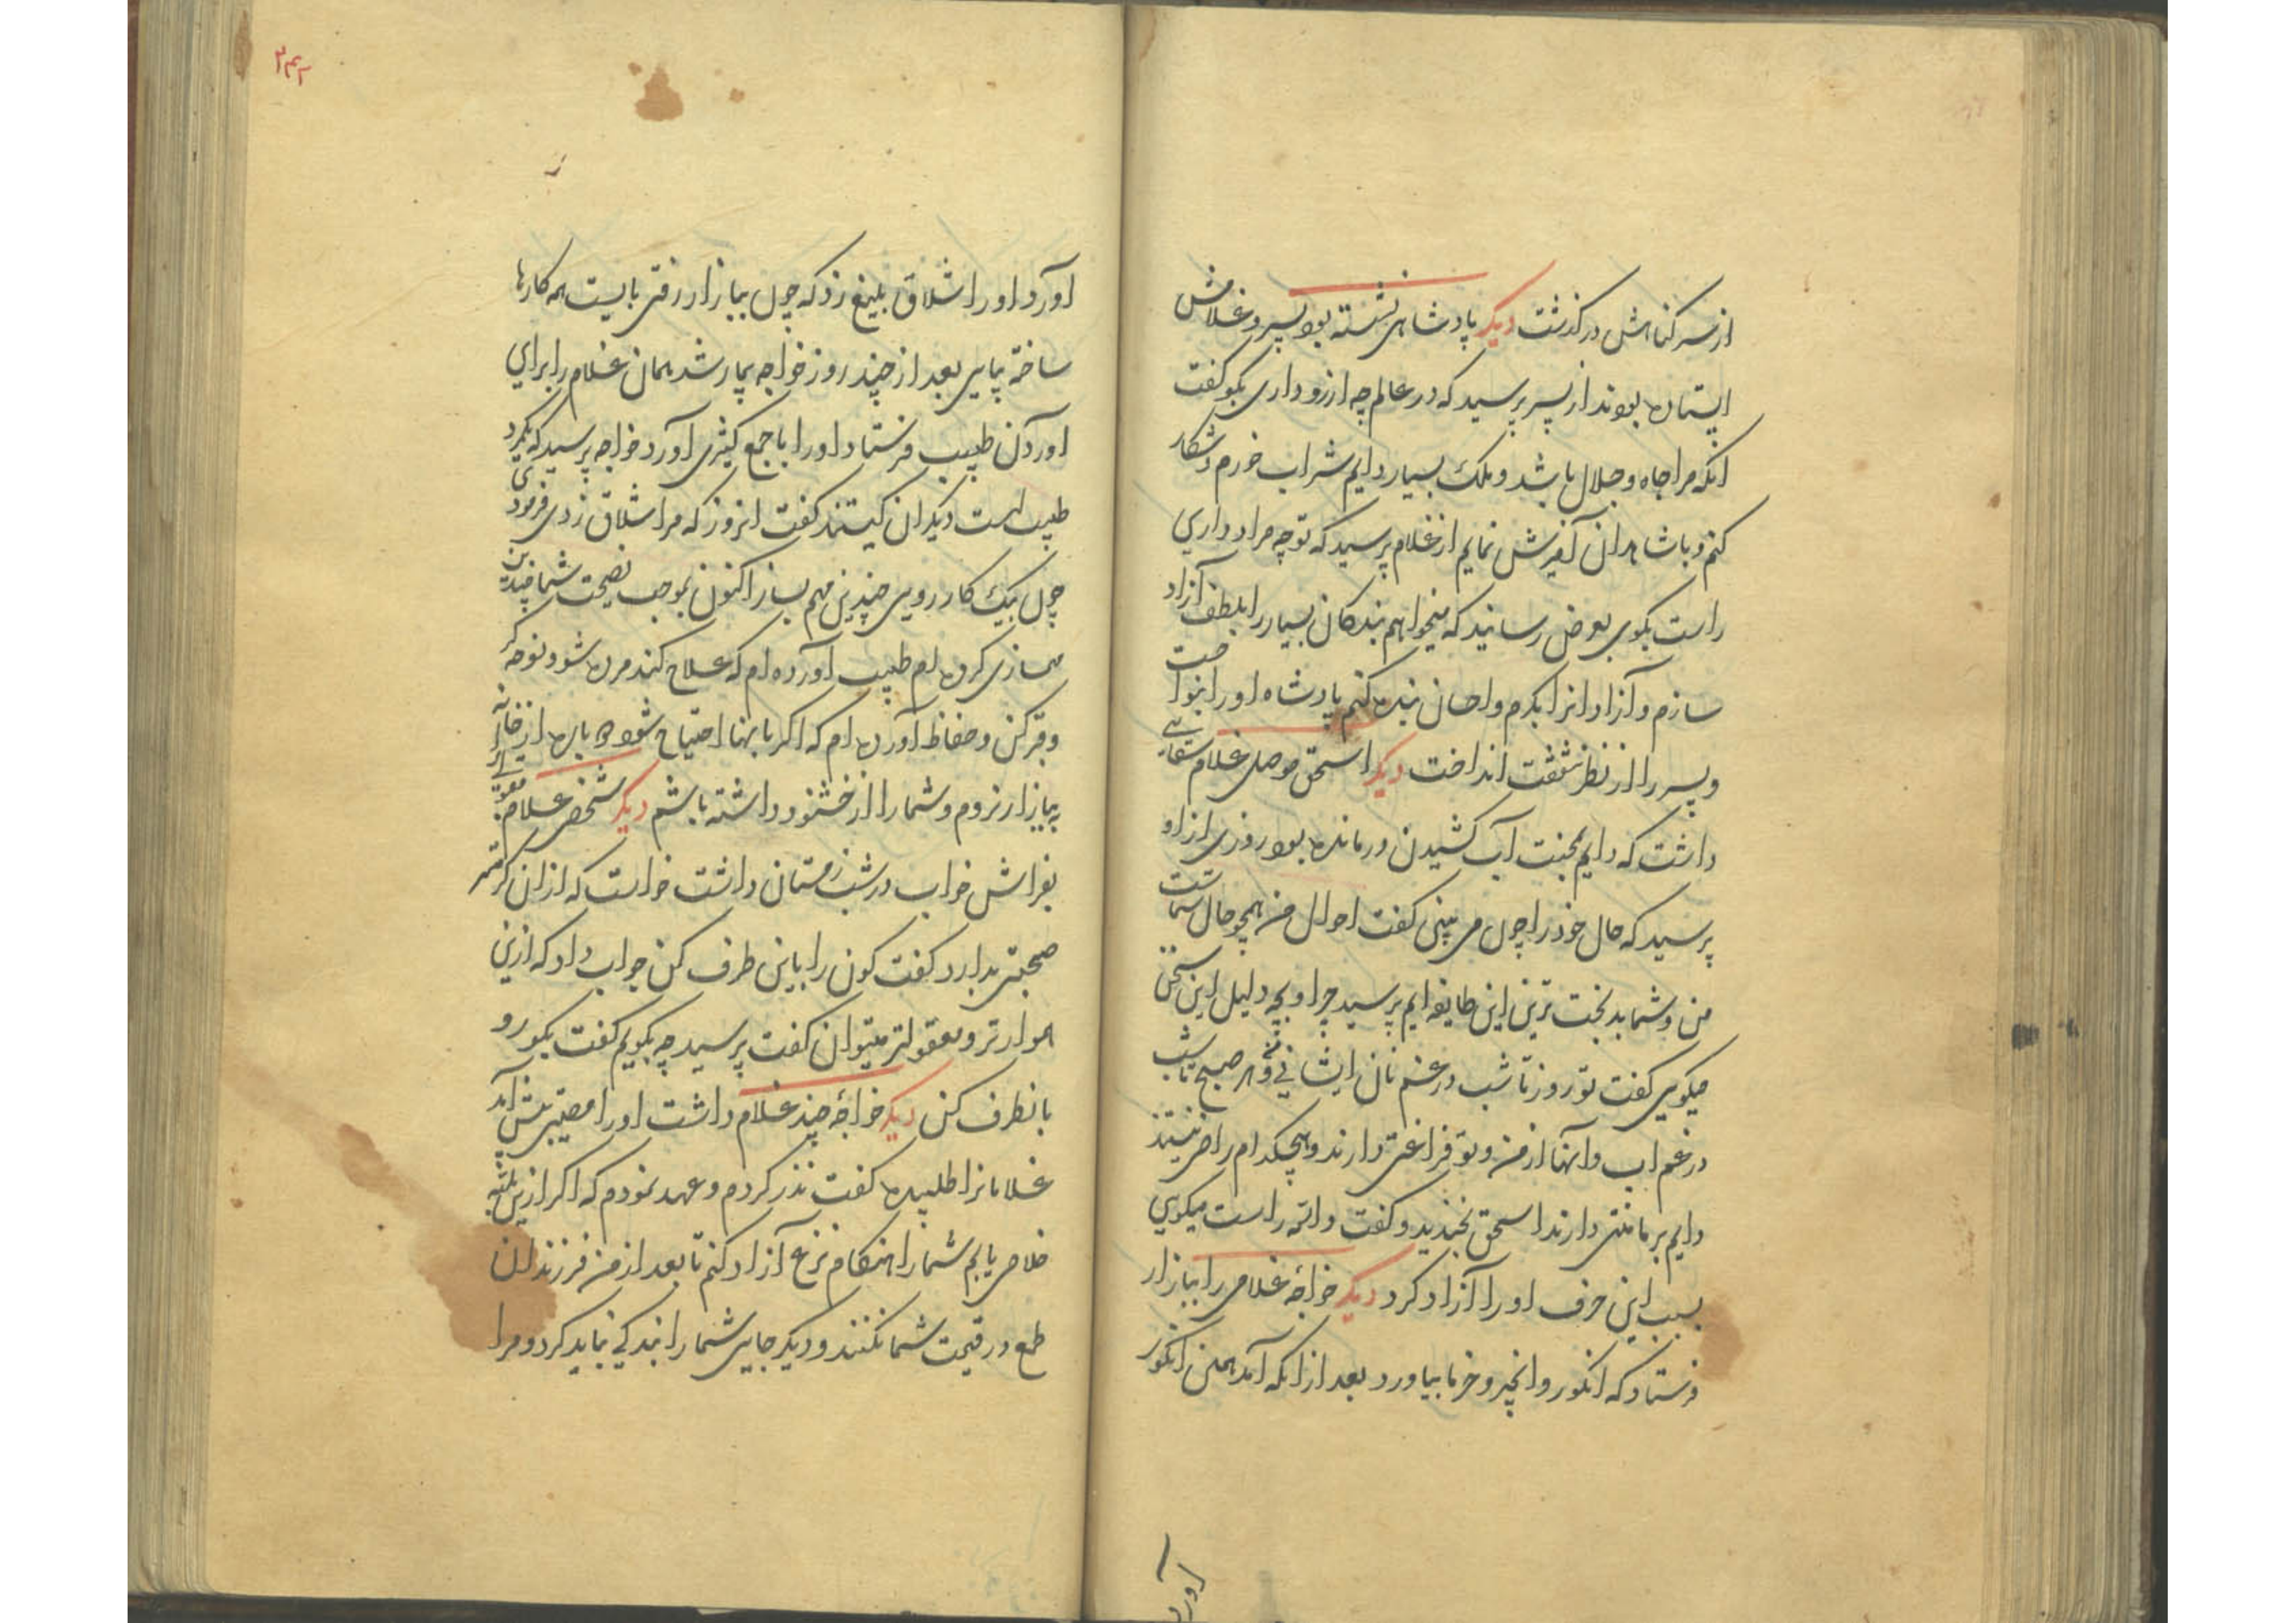 از سر کناهش درکذشت دیکر پادشاهی نشسته بود پسر و غلامش
ایستاده بودند از پسر پرسید که در عالم چه ارزو داری بکو کفت
انکه مرا جاه و جلال باشد و ملک بسیار دایم شراب خورم و شکار
کنم و با شاهدان آمیزش نمایم از غلام پرسید که تو چه مراد داری
راست بکوی بعرض رسانید که میخواهم بندکان بسیار را بلطف آزاد
سازم و آزادانرا بکرم و احسان بنده کنم پادشاه او را بنواخت
و پسر را از نظر شفقت انداخت دیکر اسحق موصلی غلام سقایی
داشت که دایم بمحنت آب کشیدن درمانده بود روزی ازاو
پرسید که حال خود را چون می بینی کفت احوال من همچو حال شماست
من و شما بدبخت ترین این طایفه ایم پرسید چرا و بچه دلیل این سخن
میکویی کفت تو روز تا شب در غم نان ایشانی و من هر صبح تا شب
در غم اب و آنها از من و تو فراغتی دارند و هیچکدام راضی نیستند
دایم بر ما منتی دارند اسحق بخندید و کفت والله راست میکویی
بسبب این حرف او را آزاد کرد دیکر خواجهٔ غلامی را ببازار
فرستاد که انکور و انجیر و خرما بیاورد بعد از انکه آمد همین انکور
آورد
۲۴۲
آورد او را شلاق بلیغ زد که چون ببازار رفتی بایست همه کارها
ساخته بیایی بعد از چند روز خواجه بیمار شد همان غلام را برای
اوردن طبیب فرستاد او را با جمع کثیری آورد خواجه پرسید که یکمرد
طبیب است دیکران کیستند کفت انروز که مرا شلاق زدی فرمودی
چون بیک کار روی چندین مهم بساز اکنون بموجب نصیحت شما چندین
مهمسازی کرده ام طبیب آورده ام که علاج کند مرده شو و نوحه کر
و قبر کن و حفاظ آورده ام که اکر باینها احتیاج شود دوباره از خانه
به بازار نروم و شما را از خود خشنود داشته باشم دیکر شخصی غلام معقولی را
بفراش خواب در شب زمستان داشت خواست که ازان کرمتر
صحبتی بدارد کفت کون را باین طرف کن جواب داد که ازین
هموارتر و معقولتر میتوان کفت پرسید چه بکویم کفت بکو رو
بانطرف کن دیکر خواجهٔ چند غلام داشت او را مصیبتی پیش آمد
غلامانرا طلبیده کفت نذر کردم و عهد نمودم که اکر ازین بلیه
خلاصی یابم شما را هنکام نزع آزاد کنم تا بعد از من فرزندان
طمع در قیمت شما نکنند و دیکر جایی شما را بندکی نباید کرد و مرا